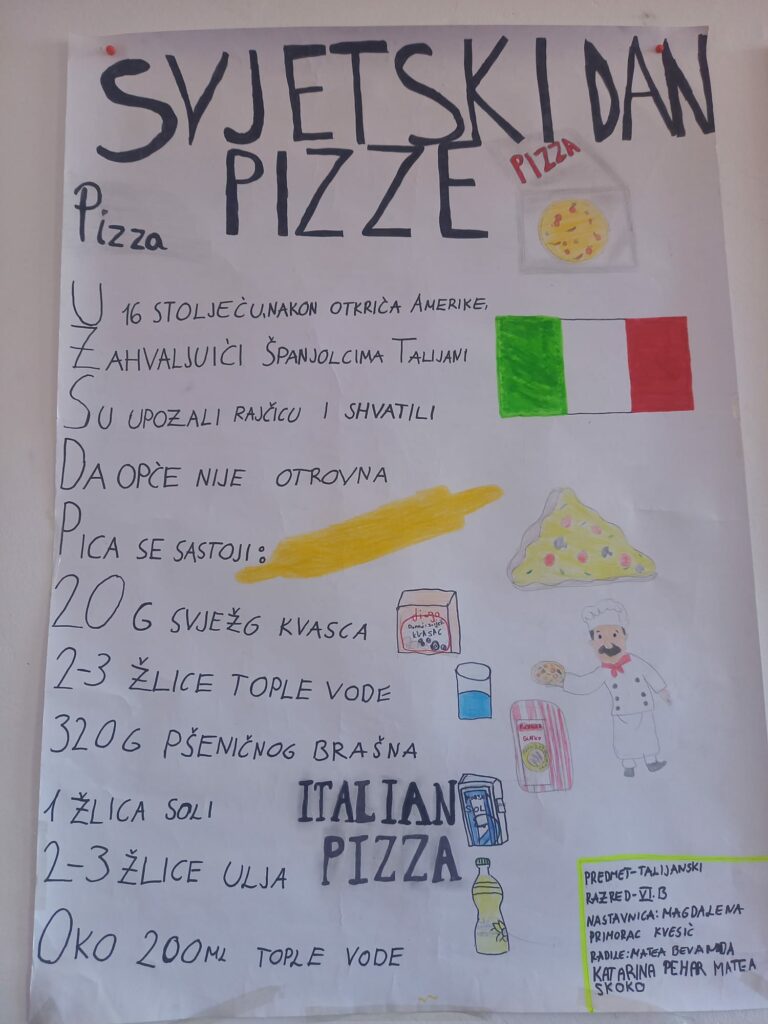 SVJETSKI DAN
PIZZE
PIZZA
Pizza
U 16 STOLJEĆU,NAKON OTKRIĆA AMERIKE,
ZAHVALJUIĆI ŠPANJOLCIMA TALIJANI
SU UPOZALI RAJČICU I SHVATILI
DA OPĆE NIJE OTROVNA
PICA SE SASTOJI:
20 G SVJEŽG KVASCA
KVASAC
2-3 ŽLICE TOPLE VODE
320G PŠENIČNOG BRAŠNA
1 ŽLICA SOLI
ITALIAN
PIZZA
SOL
2-3 ŽLICE ULJA
OKO 200ML TOPLE VODE
PREDMET-TALIJANSKI
RAZRED-VI.B
NASTAVNICA: MAGDALENA
PRIMORAC KVESIĆ
RADILE: MATEA BEVANDA
KATARINA PEHAR MATEA
SKOKO